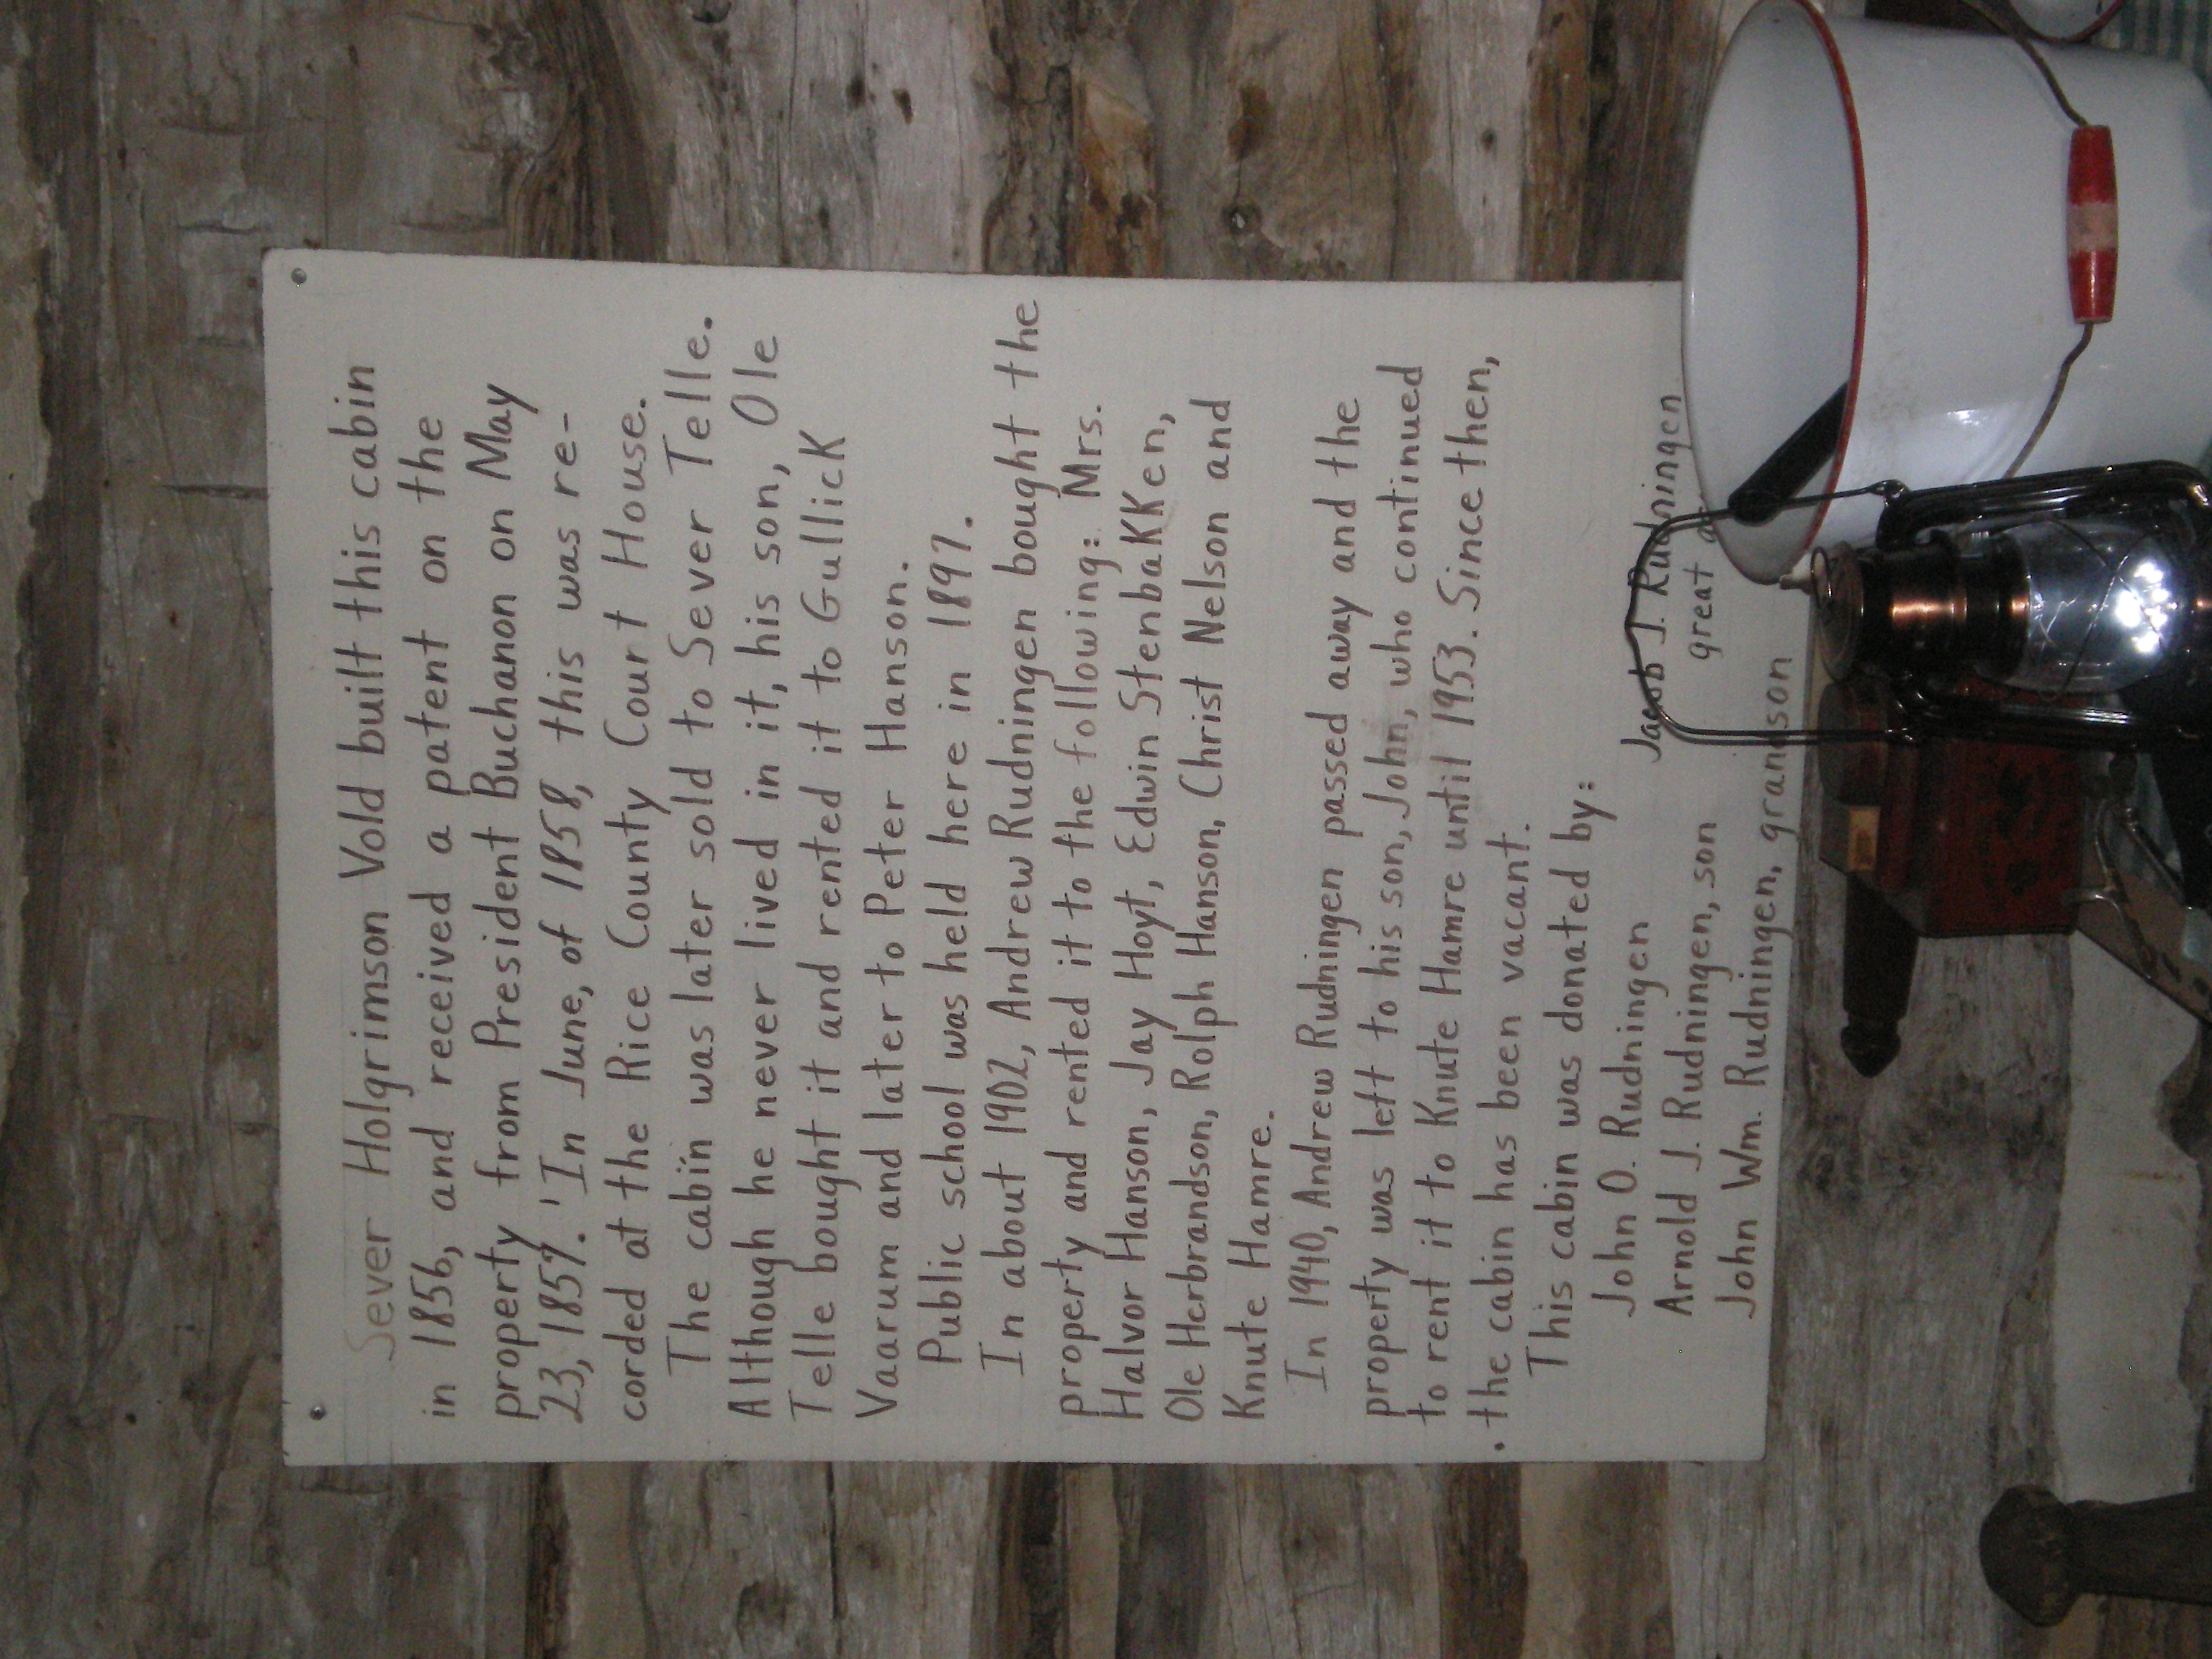 Sever Holgrimson Vold built this cabin
in 1856, and received a patent on the
property from President Buchanon on May
23, 1857. 'In June, of 1858, this was re-
corded at the Rice County Court House.
The cabin was later sold to Sever Telle.
Although he never lived in it, his son, Ole
Telle bought it and rented it to Gullick
Vaarum and later to Peter Hanson.
Public school was held here in 1897.
In about 1902, Andrew Rudningen bought the
property and rented it to the following: Mrs.
Halvor Hanson, Jay Hoyt, Edwin Stenbakken,
Ole Herbrandson, Rolph Hanson, Christ Nelson and
Knute Hamre.
In 1940, Andrew Rudningen passed away and the
property was left to his son, John, who continued
to rent it to Knute Hamre until 1953. Since then,
the cabin has been vacant.
This cabin was donated by:
John O. Rudningen
Arnold J. Rudningen, son
John Wm. Rudningen, grandson
Jacob J. Rudningen
great